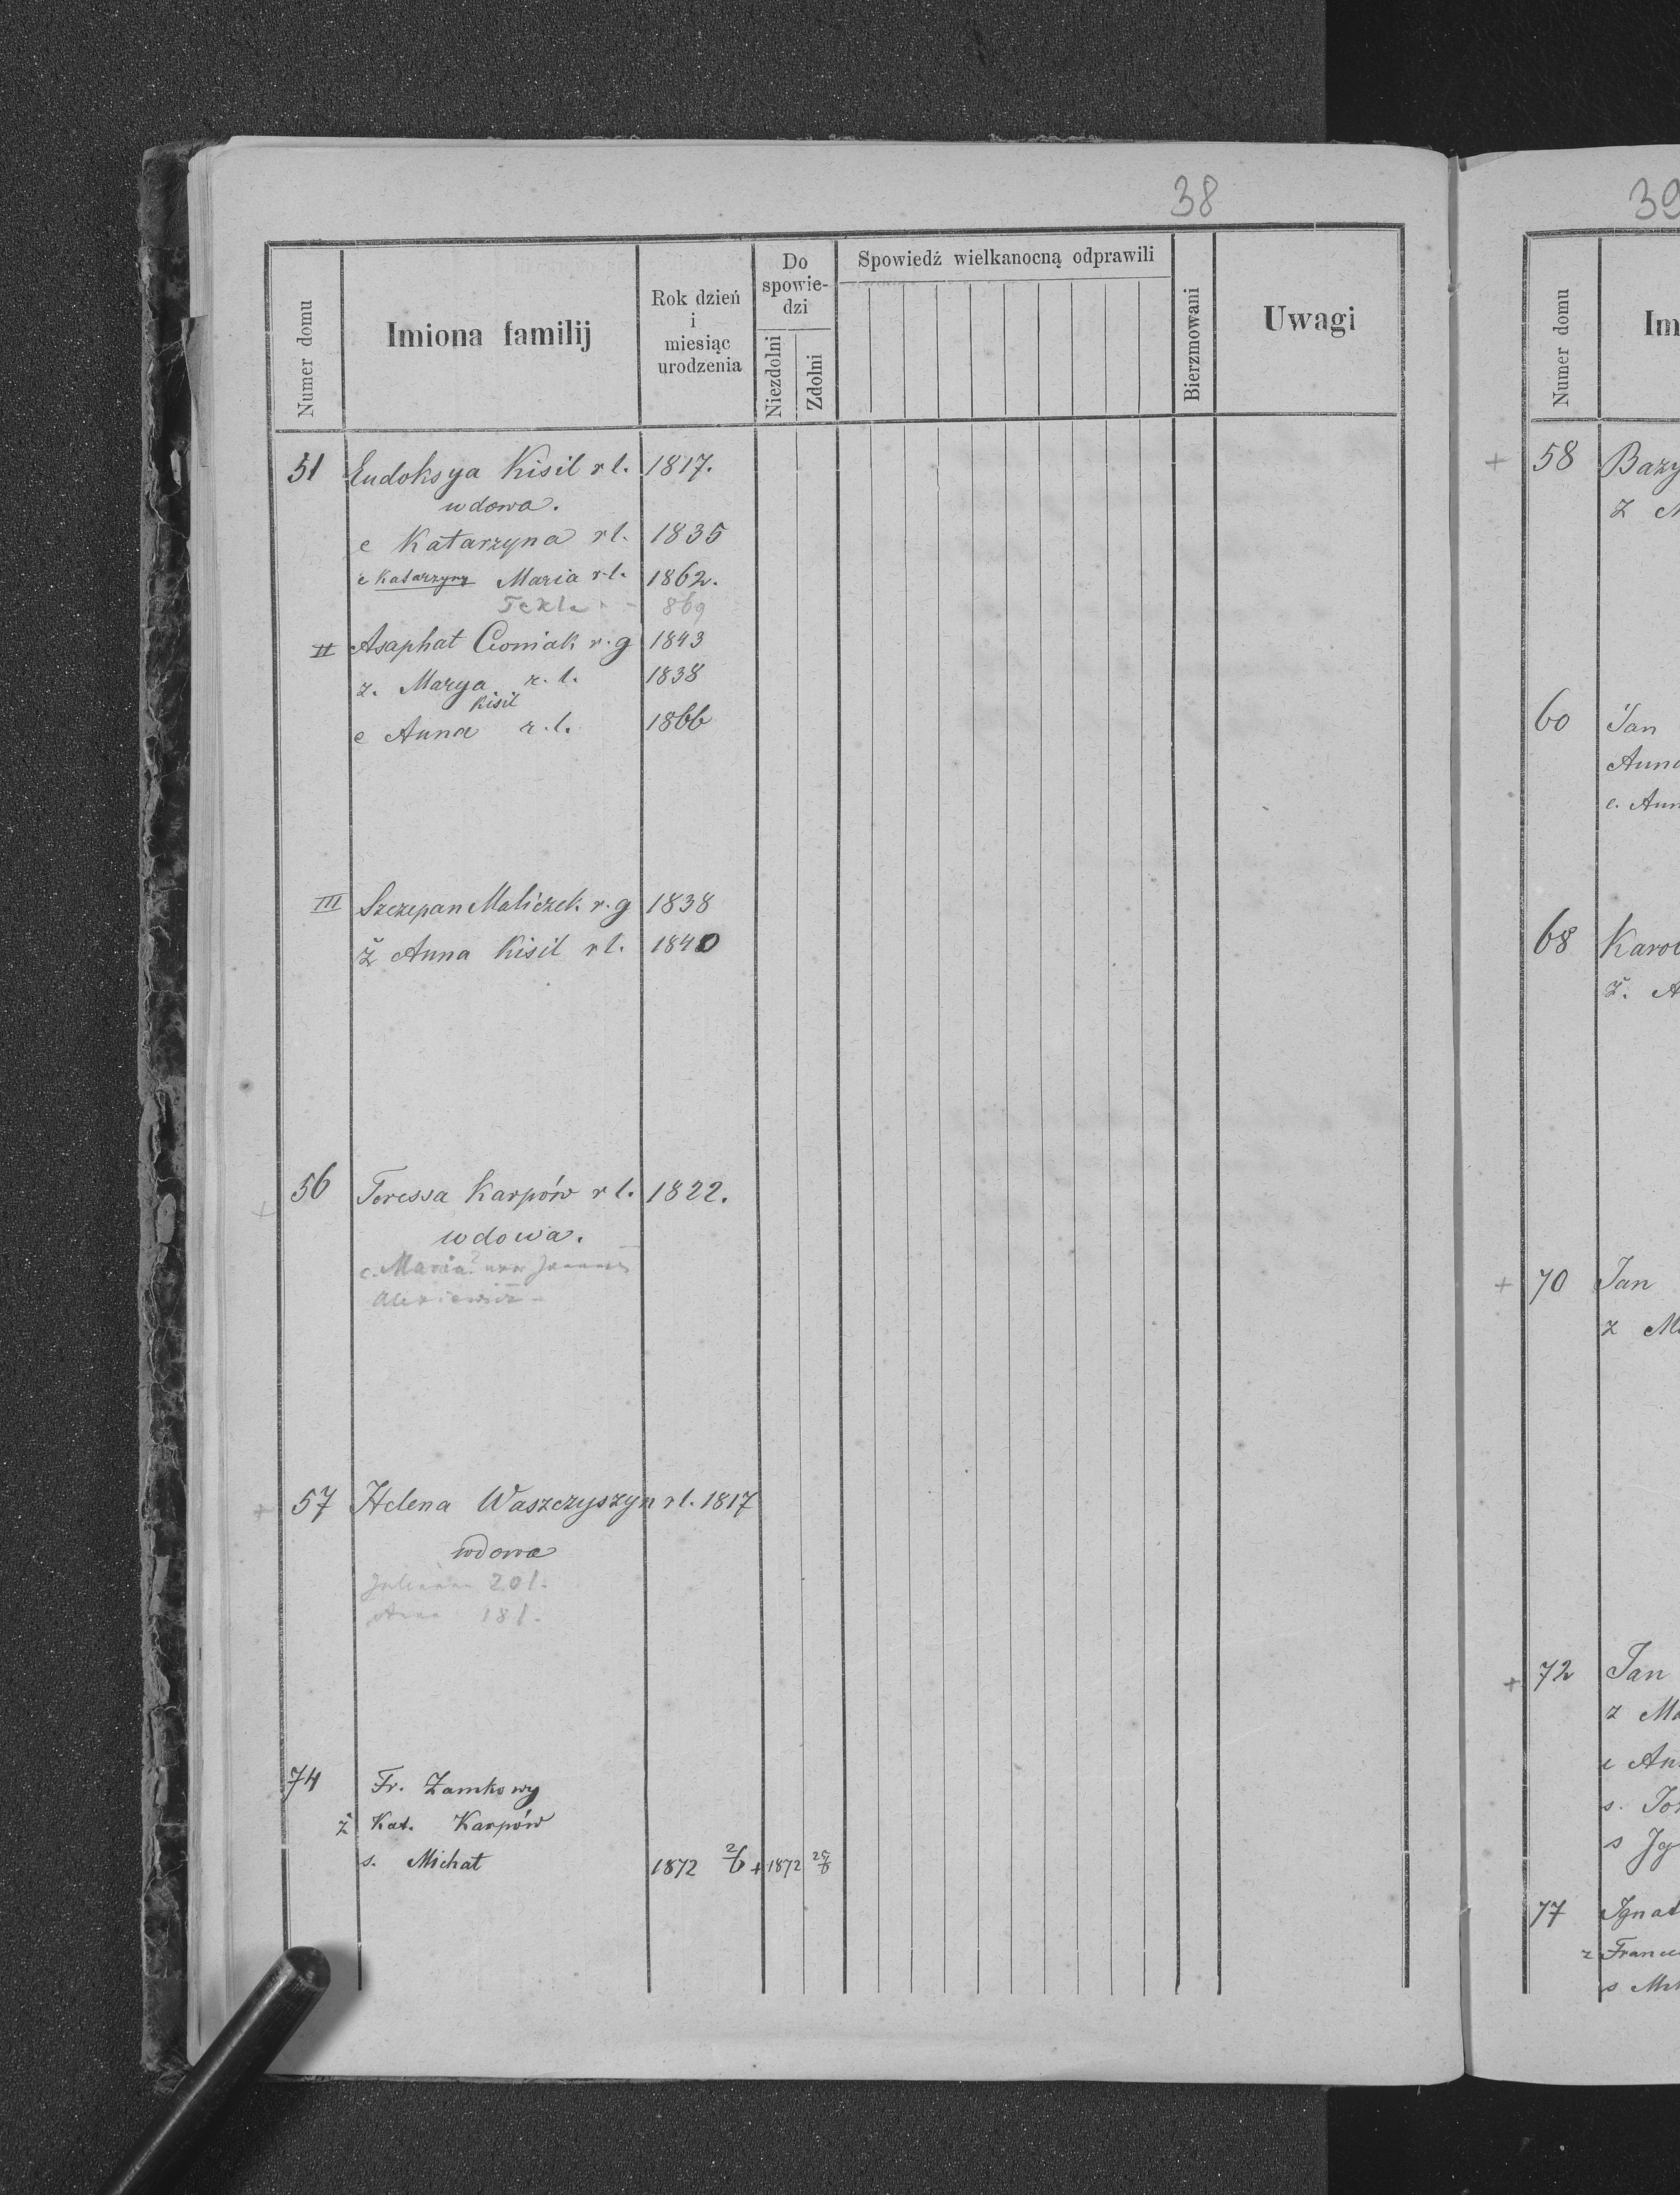 38
Numer domu
Imiona familij
Rok dzień
i
miesiąc
urodzenia
Do
spowie-
dzi
Niezdolni
Zdolni
Spowiedź wielkanocną odprawili
Bierzmowani
Uwagi
51 Eudoksya Kisil r l. 1817.
wdowa.
c Katarzyna r l. 1835
c Katarzyny Maria r l. 1862.
Tekla 869
II Asaphat Cioniak r. g 1843
ż. Marya r. l. 1838
Kisil
c Anna r. l. 1866
III Szczepan Maliczek r. g 1838
ż Anna Kisil r l. 1840
+ 56 Teressa Karpów r l. 1822.
wdowa.
c. Maria
+ 57 Helena Waszczyszyn r l. 1817
wdowa
Julianna 20 l.
Anna 18 l.
74 Fr. Zamkowy
ż Kat. Karpów
s. Michał 1872 2/6 + 1872
39
Numer domu
Im
+ 58 Bazy
ż M
60 Jan
Anna
c. Ann
68 Karol
ż. A
+ 70 Jan
ż Ma
+ 72 Jan
ż Ma
c An
s. Jo
s Jg
77 Ignat
ż Franc
s Mi